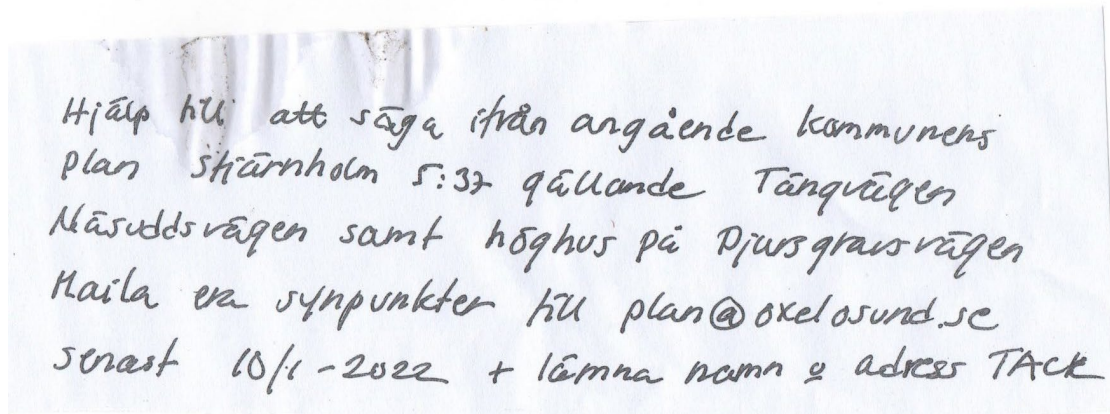 Hjälp till att säga ifrån angående kommunens
plan Stjärnholm 5:37 gällande Tångvägen
Näsuddsvägen samt höghus på Djursgravsvägen
Maila era synpunkter till plan@oxelosund.se
senast 10/1-2022 + lämna namn o adress TACK